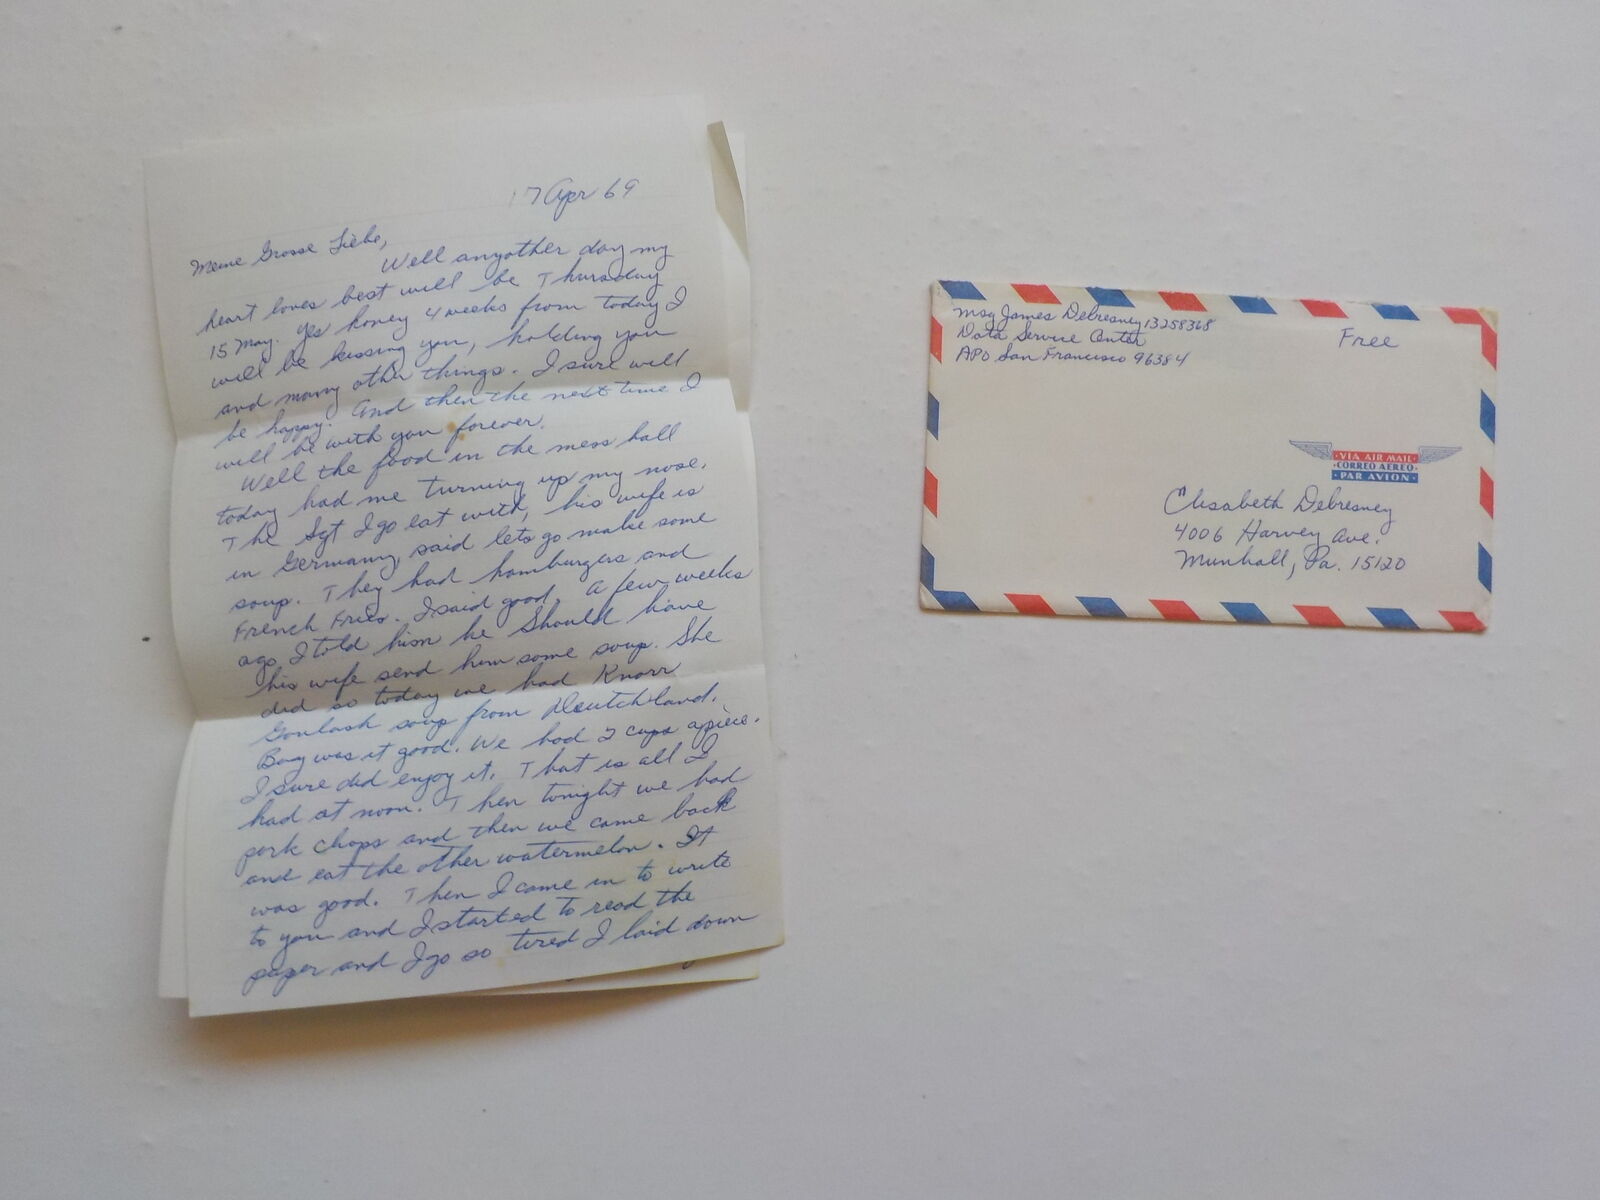 17 Apr 69
Meine Grosse Liebe,
Well anyother day my
heart loves best will be Thursday
15 May. Yes honey 4 weeks from today I
will be kissing you, holding you
and many other things. I sure will
be happy. And then the next time I
will be with you forever.
Well the food in the mess hall
today had me turning up my nose.
The Sgt I go eat with, his wife is
in Germany, said lets go make some
soup. They had hamburgers and
French Fries. I said good. A few weeks
ago I told him he should have
his wife send him some soup. She
did so today we had Knorr
Goulash soup from Deutchland.
Boy was it good. We had 2 cups apiece.
I sure did enjoy it. That is all I
had at noon. Then tonight we had
pork chops and then we came back
and eat the other watermelon. It
was good. Then I came in to write
to you and I started to read the
paper and I go so tired I laid down
Msg James Debresney 13258368
Data Service Center
APO San Francisco 96384
Free
VIA AIR MAIL
CORREO AEREO
PAR AVION
Elisabeth Debresney
4006 Harvey Ave.
Munhall, Pa. 15120